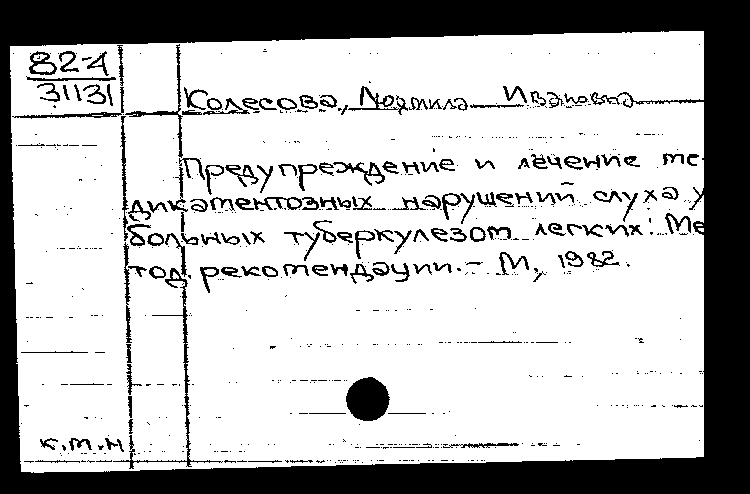 82-4
31131
Колесова, Людмила Ивановна
Предупреждение и лечение ме-
дикаментозных нарушений слуха у
больных туберкулезом легких: Ме
тод. рекомендации. – М, 1982.
к.т.н